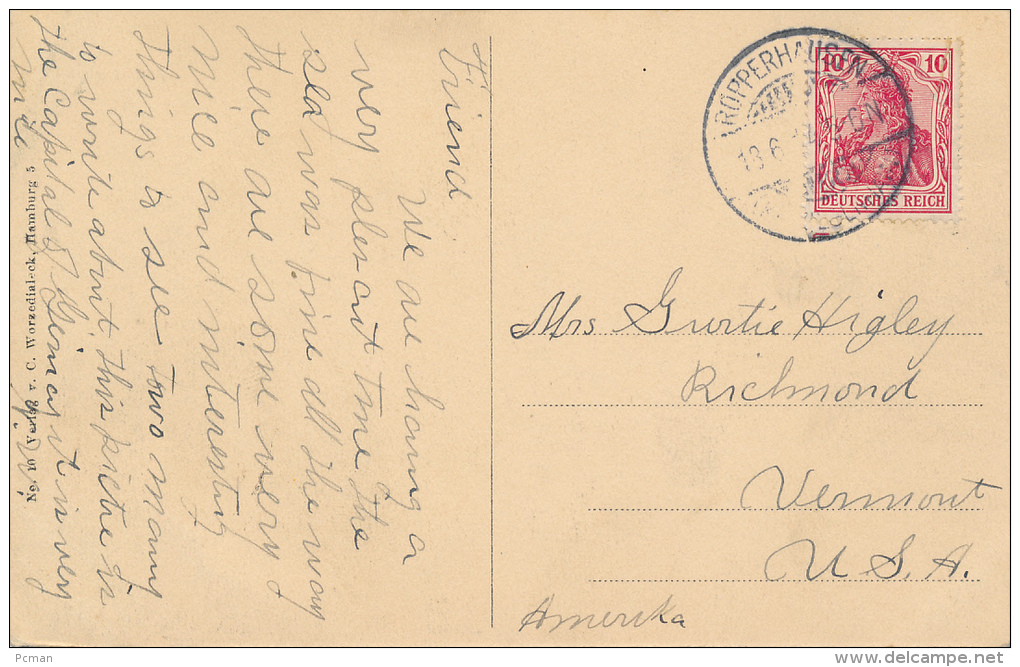 Friend
We are having a
very plesant time the
sea was fine all the way
there are some very
nice and interesting
things to see two many
to write about, this picture is
the Capital of Germany it is very
nice
No. 10 Verlag v. C. Worzedialeck, Hamburg 5
RÖPPERHAUSEN
18.6
10 10
DEUTSCHES REICH
Mrs Gurtie Higley
Richmond
Vermont
U.S.A.
Amerika
Pcman
www.delcampe.net